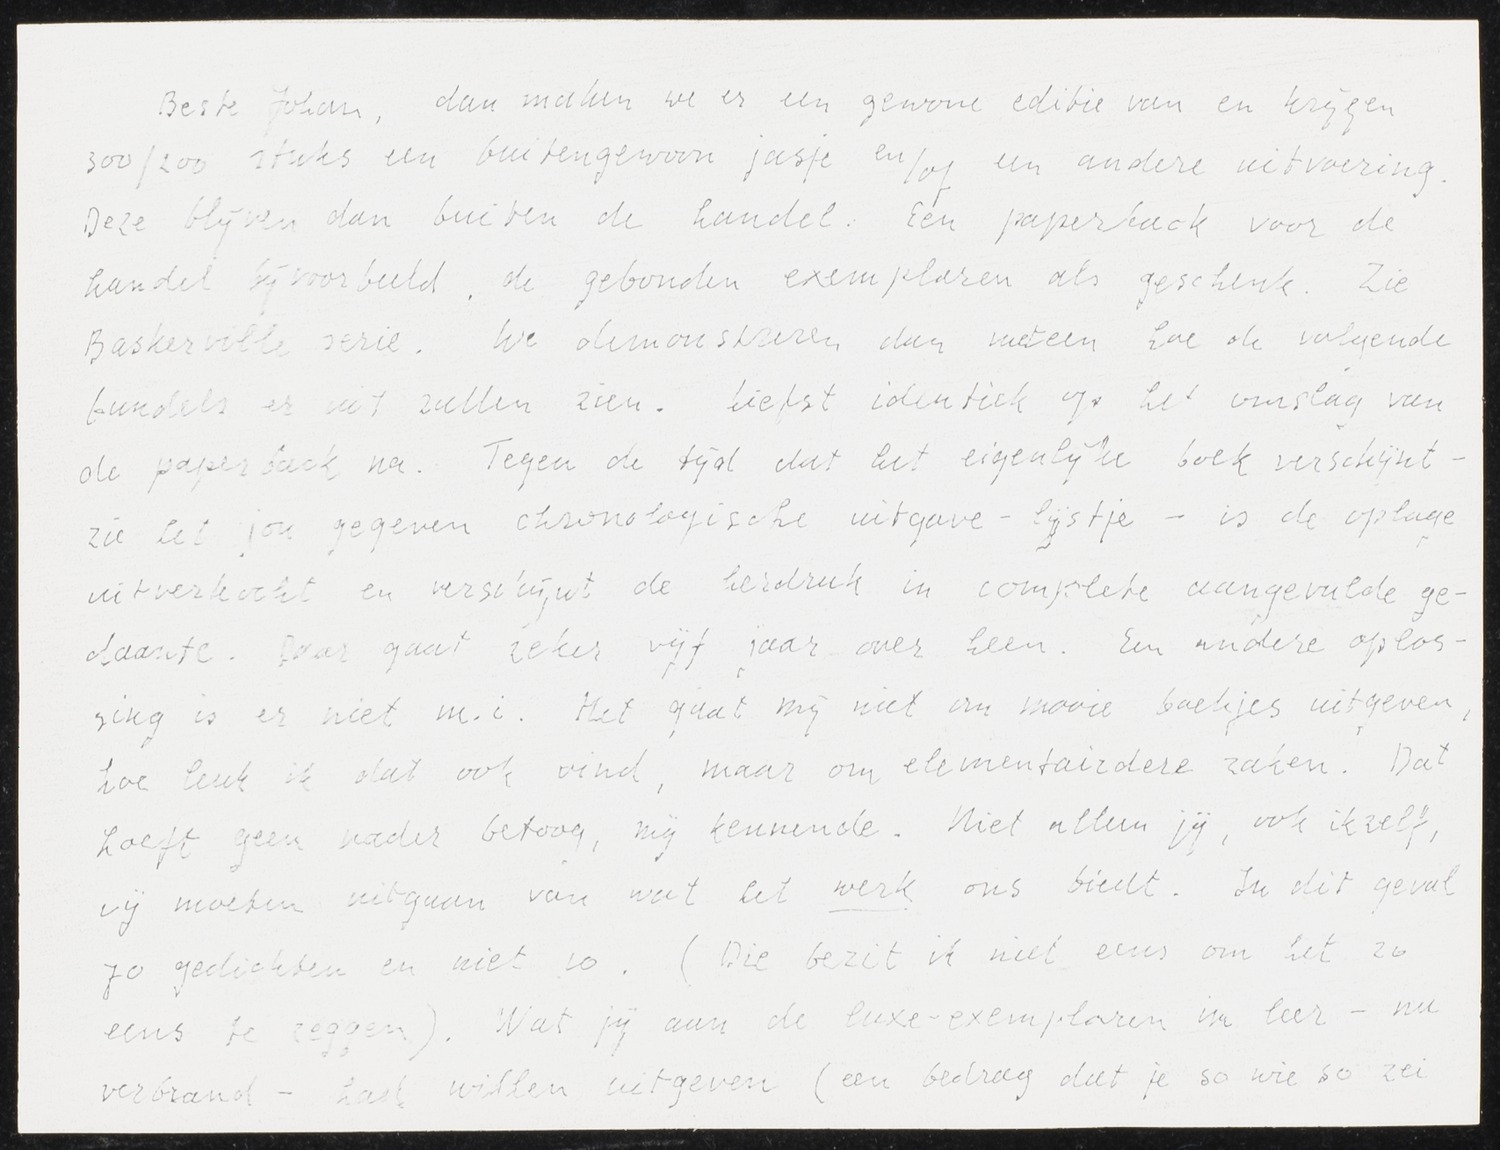 Beste Johan, dan maken we er een gewone editie van en krijgen
300/200 stuks een buitengewoon jasje en/of een andere uitvoering.
Deze blijven dan buiten de handel. Een paperback voor de
handel bijvoorbeeld, de gebonden exemplaren als geschenk. Zie
Baskerville serie. We demonstreren dan meteen hoe de volgende
bundels er uit zullen zien. Liefst identiek op het omslag van
de paperback na. Tegen de tijd dat het eigenlijke boek verschijnt -
zie het jou gegeven chronologische uitgave-lijstje - is de oplage
uitverkocht en verschijnt de herdruk in complete aangevulde ge-
daante. Daar gaat zeker vijf jaar over heen. Een andere oplos-
sing is er niet m.i. Het gaat mij niet om mooie boekjes uitgeven,
hoe leuk ik dat ook vind, maar om elementairdere zaken. Dat
hoeft geen nader betoog, mij kennende. Niet alleen jij, ook ikzelf,
wij moeten uitgaan van wat het werk ons biedt. In dit geval
70 gedichten en niet 10. (Die bezit ik niet eens om het zo
eens te zeggen). Wat jij aan de luxe-exemplaren in leer - nu
verbrand - had willen uitgeven (een bedrag dat je so wie so zei